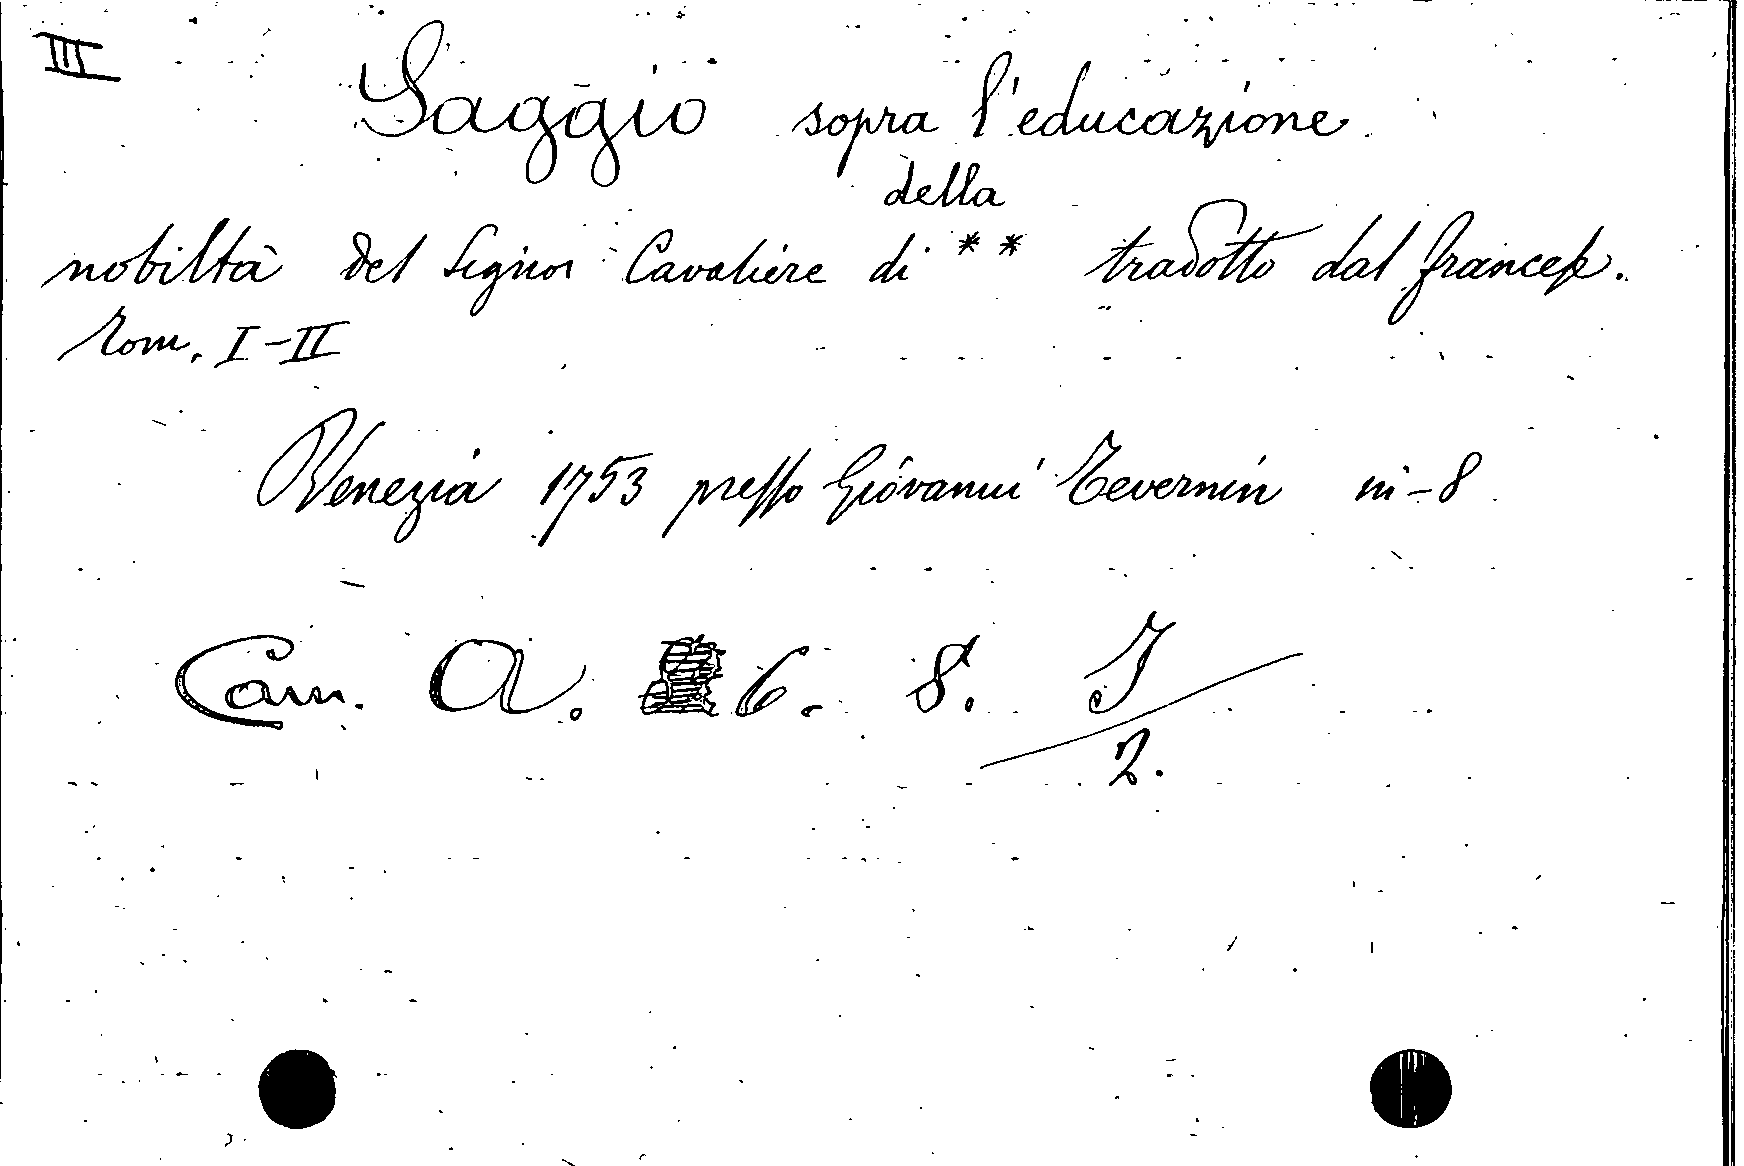 III
Saggio sopra l'educazione
della
nobiltà del Signor Cavaliere di ** tradotto dal francese.
Tom. I-II
Venezia 1753 presso Giovanni Tevernin in-8
Cam. A. 6. 8. I
2.